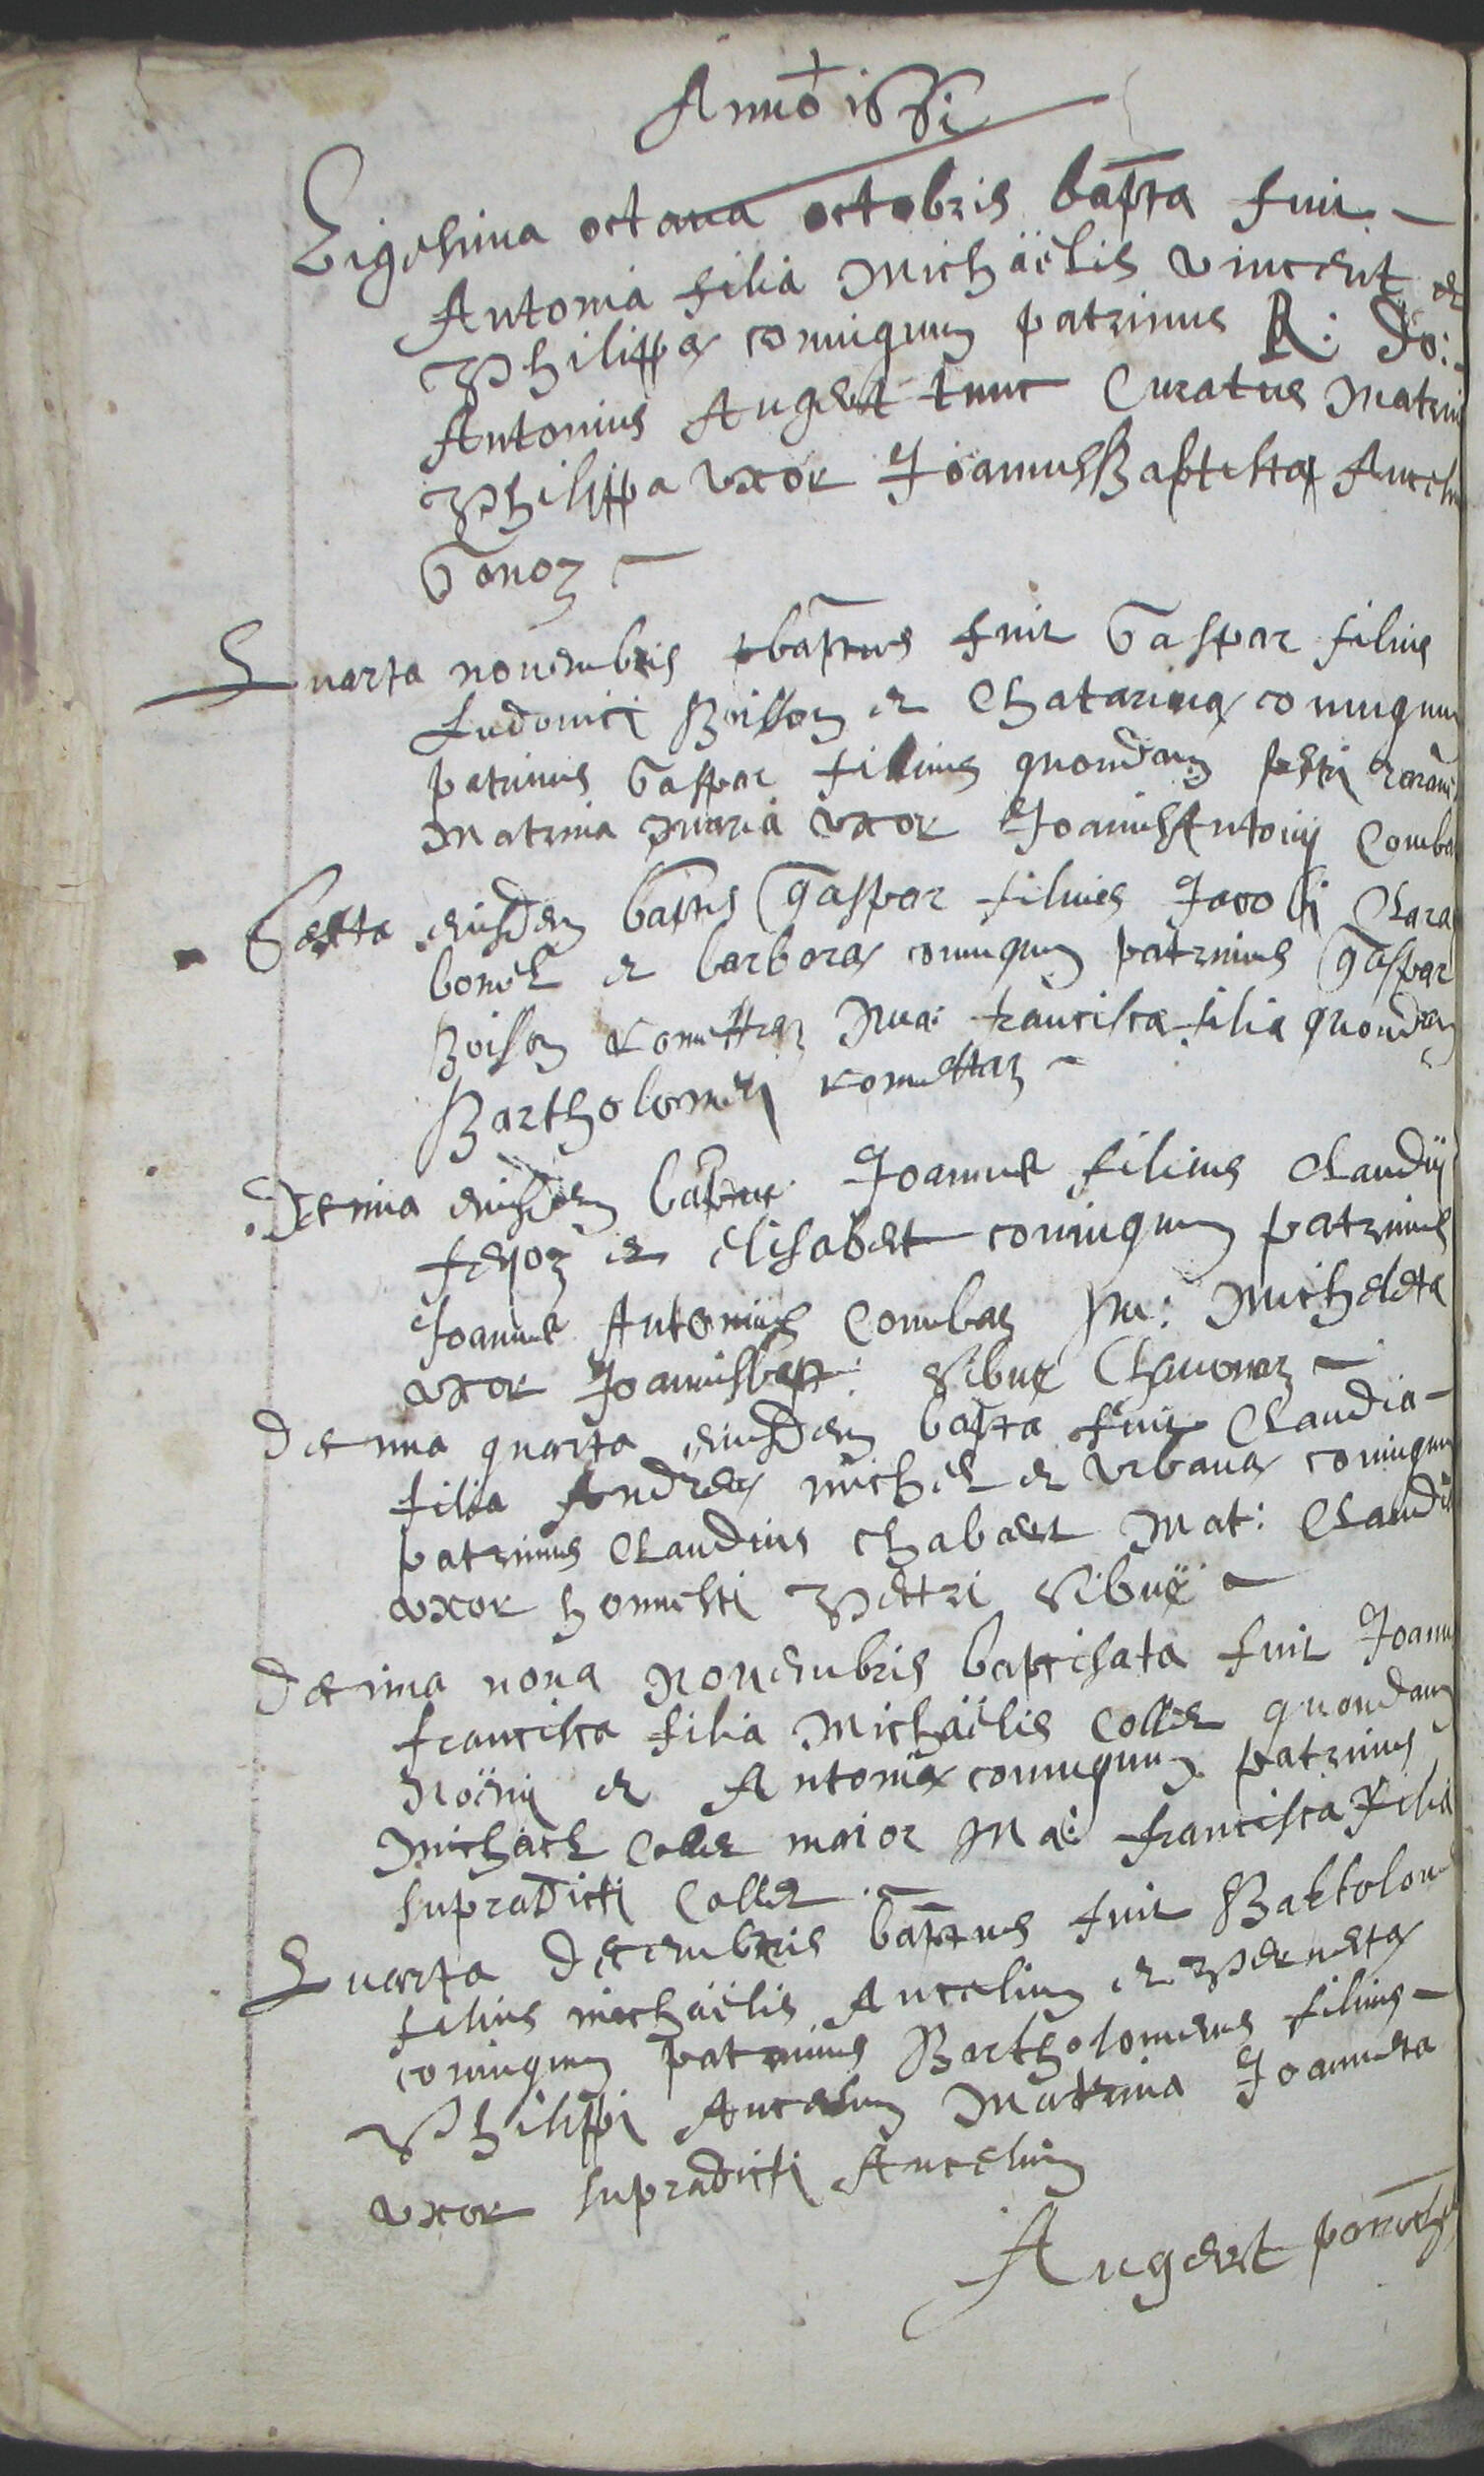 Anno
Vigesima octaua octobris bapta fuit
Antonia filia Michaëlis vincent et
Philippæ coniugum patrinus R: Do:
Antonius Augert tunc Curatus Matrin
Philippa vxor JoannisBaptistæ Ancelin
Gonoz
Quarta nouembris baptus fuit Gaspar filius
Ludouici Boisson et Chatarinæ coniugum
patrinus Gaspar filius quondam petri
Matrina Maria vxor JoannisAntonij Comba
Sexta eiusdem baptus Gaspar filius Jacobi Clara
bonet et barboræ coniugum patrinus Gaspar
Boisson Ma: francisca filia quondam
Bartholomei
Decima eiusdem baptus Joannes filius Claudij
feyoz et elisabet coniugum patrinus
Joannes Antonius Combaz Ma: Micheleta
vxor JoannisBapt: Sibue Chauonaz
Decima quarta eiusdem bapta fuit Claudia
filia Andreæ michel et vrbanæ coniugum
patrinus Claudius Chabert Mat: Claudia
vxor honesti Pettri Sibuë
Decima nona Nouembris baptisata fuit Joanna
francisca filia Michaëlis Collet quondam
Noëmi et Antoniæ coniugum patrinus
Michael Collet maior Ma: francisca filia
supradicti Collet
Quarta decembris baptus fuit Bartolom
filius michaëlis Ancelin et Pernetæ
coniugum patrinus Bartholomeus filius
Philippi Ancelin Matrina Joanneta
vxor supradicti Ancelin
Augert